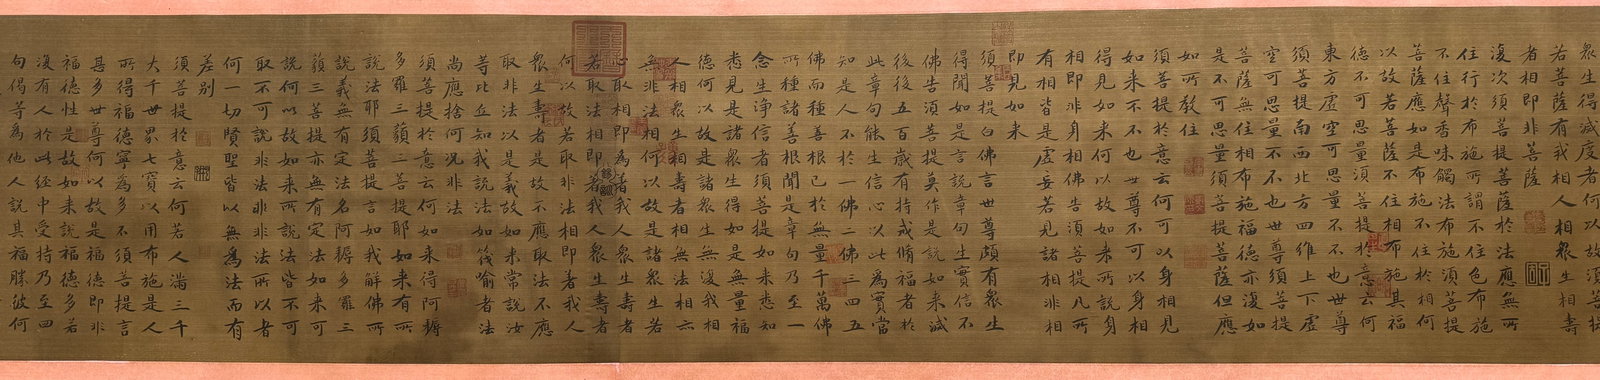 衆生得滅度者何以故須菩提
若菩薩有我相人相衆生相壽
者相即非菩薩
復次須菩提菩薩於法應無所
住行於布施所謂不住色布施
不住聲香味觸法布施須菩提
菩薩應如是布施不住於相何
以故若菩薩不住相布施其福
德不可思量須菩提於意云何
東方虛空可思量不不也世尊
須菩提南西北方四維上下虛
空可思量不不也世尊須菩提
菩薩無住相布施福德亦復如
是不可思量須菩提菩薩但應
如所教住
須菩提於意云何可以身相見
如來不不也世尊不可以身相
得見如來何以故如來所說身
相即非身相佛告須菩提凡所
有相皆是虛妄若見諸相非相
即見如來
須菩提白佛言世尊頗有衆生
得聞如是言說章句生實信不
佛告須菩提莫作是說如來滅
後後五百歲有持戒脩福者於
此章句能生信心以此為實當
知是人不於一佛二佛三四五
佛而種善根已於無量千萬佛
所種諸善根聞是章句乃至一
念生淨信者須菩提如來悉知
悉見是諸衆生得如是無量福
德何以故是諸衆生無復我相
人相衆生相壽者相無法相亦
無非法相何以故是諸衆生若
心取相即為著我人衆生壽者
若取法相即著我人衆生壽者
何以故若取非法相即著我人
衆生壽者是故不應取法不應
取非法以是義故如來常說汝
等比丘知我說法如筏喻者法
尚應捨何況非法
須菩提於意云何如來得阿耨
多羅三藐三菩提耶如來有所
說法耶須菩提言如我解佛所
說義無有定法名阿耨多羅三
藐三菩提亦無有定法如來可
說何以故如來所說法皆不可
取不可說非法非非法所以者
何一切賢聖皆以無為法而有
差別
須菩提於意云何若人滿三千
大千世界七寶以用布施是人
所得福德寧為多不須菩提言
甚多世尊何以故是福德即非
福德性是故如來說福德多若
復有人於此經中受持乃至四
句偈等為他人說其福勝彼何